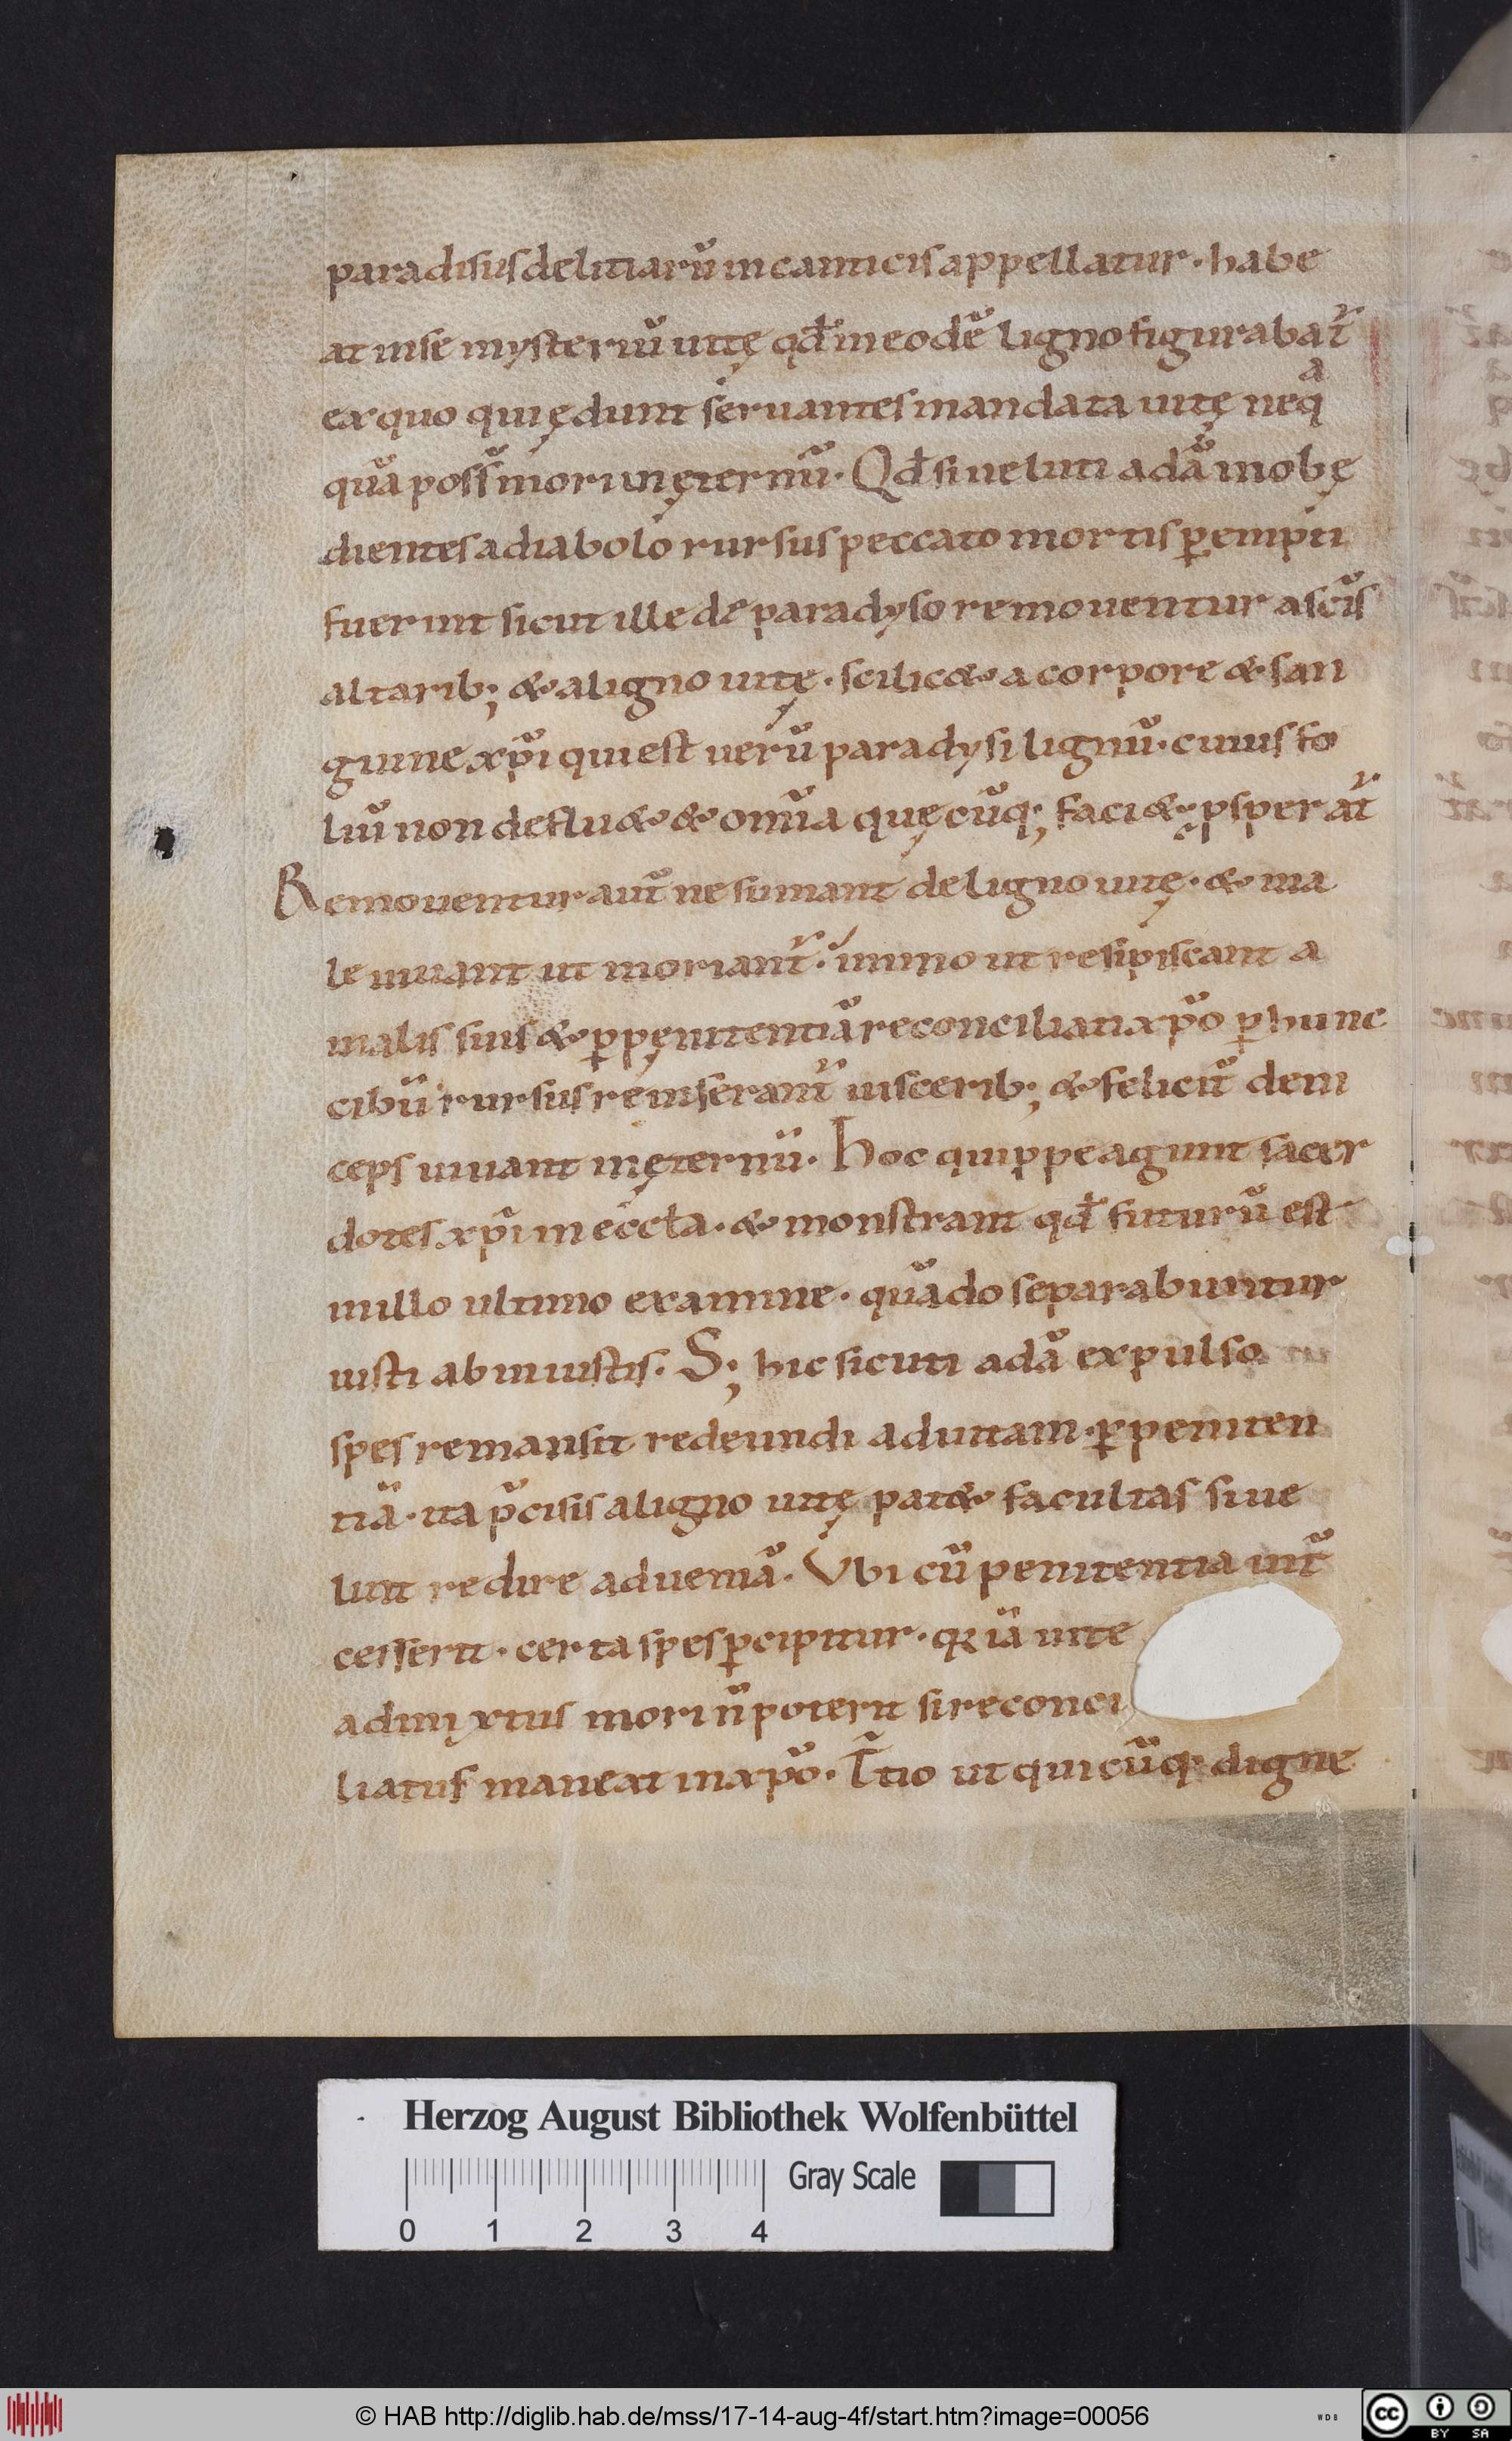 paradisus delitiarū in canticis appellatur · habe
at in se mysteriū uitę qđ in eodē ligno figurabat᷑
ex quo qui ędunt seruantes mandata uitę neqͣ
quā poss̄ mori in ęternū · Qđ si ueluti adā inobę
dientes a diabolo rursus peccato mortis ꝑempti
fuerint sicut ille de paradyso remouentur a sc̄is
altarib; & a ligno uitę · scilic& a corpore & san
guine xp̄i qui est uerū paradysi lignū · cuius fo
liū non deflu& & om̄ia quęcūq; faci& ꝓsperat᷑
Remouentur aut̄ ne sumant de ligno uitę · & ma
le uiuant ut moriant᷑ · immo ut resipiscant a
malis suis & ꝑ pęnitentiā reconciliati xp̄o ꝑ hunc
cibū rursus reinserant᷑ uiscerib; & felicit̄ dein
ceps uiuant in ęternū · Hoc quippe agunt sacer
dotes xp̄i in eccła · & monstrant qđ futurū est
in illo ultimo examine · quādo separabuntur
iusti ab iniustis · S; hic sicuti adā expulso
spes remansit redeundi ad uitam ꝑ peniten
tiā · ita p̄cisis a ligno uitę pat& facultas si ue
lint redire ad ueniā · Vbi cū penitentia int̄
cesserit · certa spes ꝑcipitur · quia uite
admyxtus mori n̄ poterit si reconci
liatus maneat in xp̄o · T̄tio ut quicūq; digne
Herzog August Bibliothek Wolfenbüttel
Gray Scale
0 1 2 3 4
© HAB http://diglib.hab.de/mss/17-14-aug-4f/start.htm?image=00056
WDB
cc BY SA